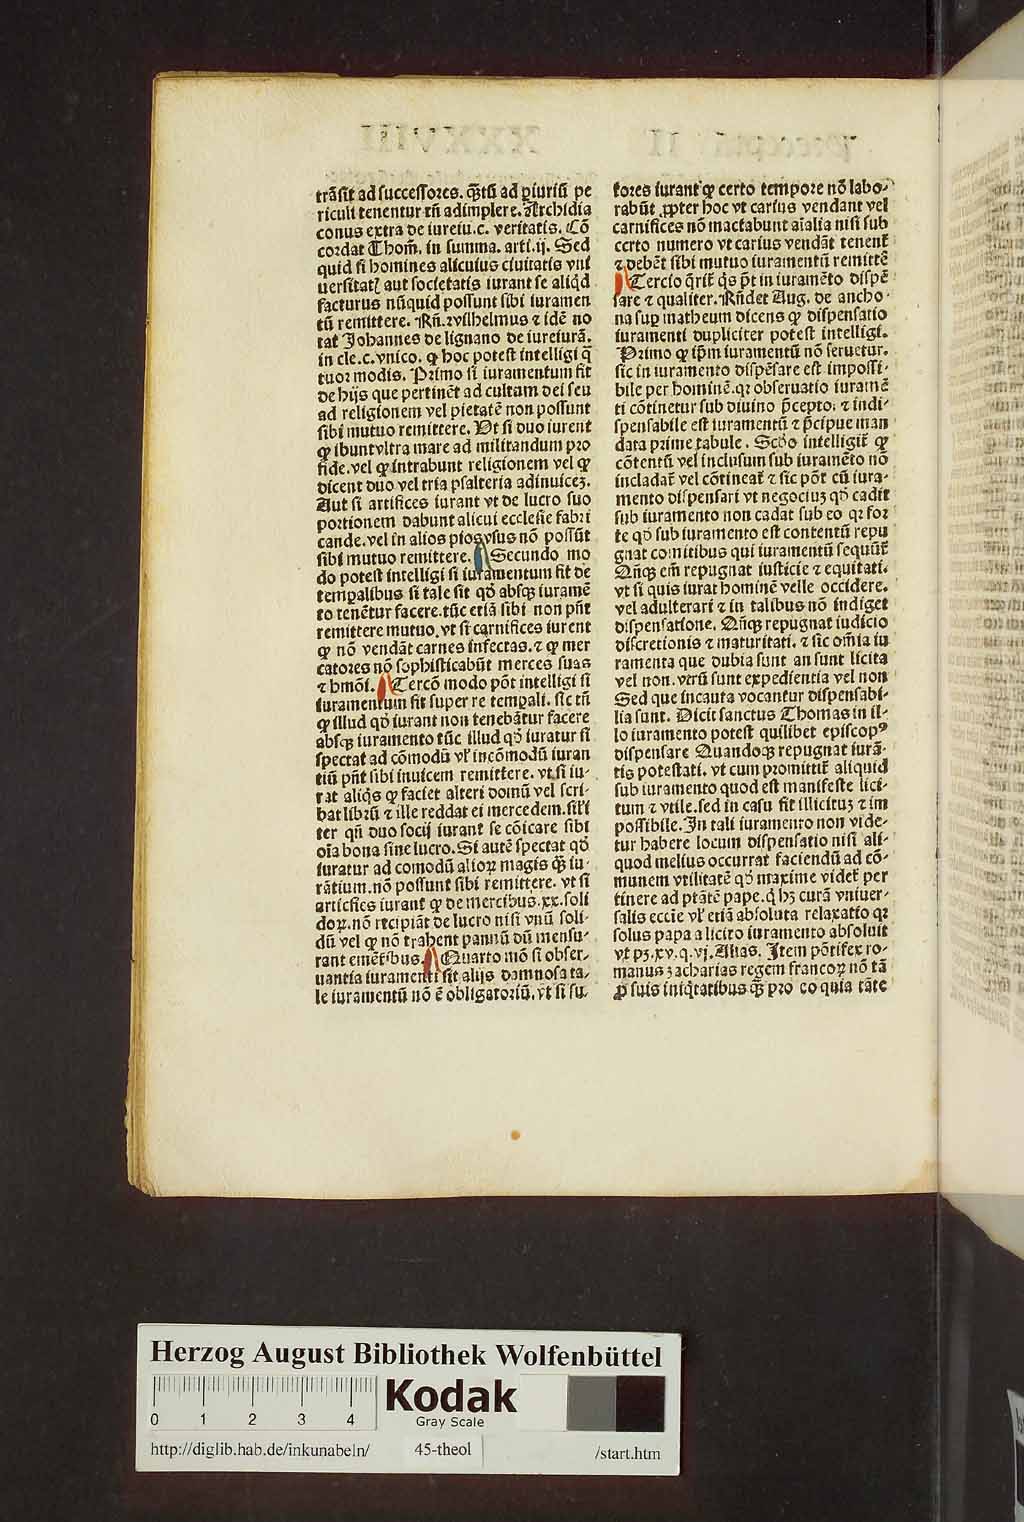 trãsit ad successores. q̃tũ ad ꝑiuriũ pe
riculi tenentur tñ adimplere. Archidia
conus extra de iureiu.c. veritatis. Cõ
cordat Thom̃. in summa. arti.ij. Sed
quid si homines alicuius ciuitatis vni
uersitatꝭ aut societatis iurant se aliqd
facturus nũquid possunt sibi iuramen
tũ remittere. Rñ. wilhelmus ⁊ idẽ no
tat Johannes de lignano de iureiurã.
in cle.c.vnico. ꝙ hoc potest intelligi q̃
tuor modis. Primo si iuramentum fit
de hijs que pertinẽt ad cultum dei seu
ad religionem vel pietatẽ non possunt
sibi mutuo remittere. Ut si duo iurent
ꝙ ibunt vltra mare ad militandum pro
fide. vel ꝙ intrabunt religionem vel ꝙ
dicent duo vel tria psalteria adinuicẽ.
Aut si artifices iurant vt de lucro suo
portionem dabunt alicui ecclesie fabri
cande. vel in alios pios vsus nõ possũt
sibi mutuo remittere. Secundo mo
do potest intelligi si iuramentum fit de
temꝑalibus si tale sit qđ absqꝫ iuramẽ
to tenẽtur facere. tũc etiã sibi non pñt
remittere mutuo. vt si carnifices iurent
ꝙ nõ vendãt carnes infectas. ⁊ ꝙ mer
catores nõ sophisticabũt merces suas
⁊ hmõi. Tercõ modo põt intelligi si
iuramentum fit super re temꝑali. sic tñ
ꝙ illud qđ iurant non tenebãtur facere
absqꝫ iuramento tũc illud qđ iuratur si
spectat ad cõmodũ vl' incõmodũ iuran
tiũ pñt sibi inuicem remittere. vt si iu-
rat aliqs ꝙ faciet alteri domũ vel scri-
bat librũ ⁊ ille reddat ei mercedem. sil'i
ter qñ duo socij iurant se cõicare sibi
oĩa bona sine lucro. Si autẽ spectat qđ
iuratur ad comodũ alioꝝ magis q̃ iu-
rãtium. nõ possunt sibi remittere. vt si
articfices iurant ꝙ de mercibus.xx.soli
doꝝ. nõ recipiãt de lucro nisi vnũ soli-
dũ vel ꝙ nõ trahent pannũ dũ mensu-
rant emẽtibus. Quarto mõ si obser-
uantia iuramenti sit alijs damnosa ta-
le iuramentũ nõ ẽ obligatoriũ. vt si su-
tores iurant ꝙ certo tempore nõ labo-
rabũt ꝓpter hoc vt carius vendant vel
carnifices nõ mactabunt aĩalia nisi sub
certo numero vt carius vendãt tenent̃
⁊ debẽt sibi mutuo iuramentũ remittẽ
Tercio q̃rit̃ qs p̃t in iuramẽto dispẽ
sare ⁊ qualiter. Rñdet Aug. de ancho-
na suꝑ matheum dicens ꝙ dispensatio
iuramenti dupliciter potest intelligi.
Primo ꝙ ip̃m iuramentũ nõ seruetur.
sic in iuramento dispẽsare est impossi-
bile per hominẽ. qꝛ obseruatio iuramẽ
ti cõtinetur sub diuino p̃cepto. ⁊ indi-
spensabile est iuramentũ ⁊ p̃cipue man
data prime tabule. Scďo intelligit̃ ꝙ
cõtentũ vel inclusum sub iuramẽto nõ
includat̃ vel cõtineat̃ ⁊ sic põt cũ iura-
mento dispensari vt negociuꝫ qđ cadit
sub iuramento non cadat sub eo qꝛ for
te qđ sub iuramento est contentũ repu
gnat comitibus qui iuramentũ sequũt̃
Qñqꝫ em̃ repugnat iusticie ⁊ equitati.
vt si quis iurat hominẽ velle occidere.
vel adulterari ⁊ in talibus nõ indiget
dispensatione. Qñqꝫ repugnat iudicio
discretionis ⁊ maturitati. ⁊ sic om̃ia iu
ramenta que dubia sunt an sunt licita
vel non. vtrũ sunt expedientia vel non
Sed que incauta vocantur dispensabi-
lia sunt. Dicit sanctus Thomas in il-
lo iuramento potest quilibet episcopꝰ
dispensare Quandoqꝫ repugnat iurã-
tis potestati. vt cum promittit̃ aliquid
sub iuramento quod est manifeste lici-
tum ⁊ vtile. sed in casu fit illicituꝫ ⁊ im
possibile. In tali iuramento non vide-
tur habere locum dispensatio nisi ali-
quod melius occurrat faciendũ ad cõ-
munem vtilitatẽ qđ maxime videt̃ per
tinere ad ptãtẽ pape. q̇ hꝫ curã vniuer-
salis eccĩe vl' etiã absoluta relaxatio qꝛ
solus papa a licito iuramento absoluit
vt pꝫ.xv.q.vj. Alias. Item põtifex ro-
manus zacharias regem francoꝝ nõ tã
ꝓ suis iniq̇tatibus q̃ꝫ pro eo quia tãte
Herzog August Bibliothek Wolfenbüttel
0 1 2 3 4
Kodak
Gray Scale
http://diglib.hab.de/inkunabeln/ 45-theol /start.htm